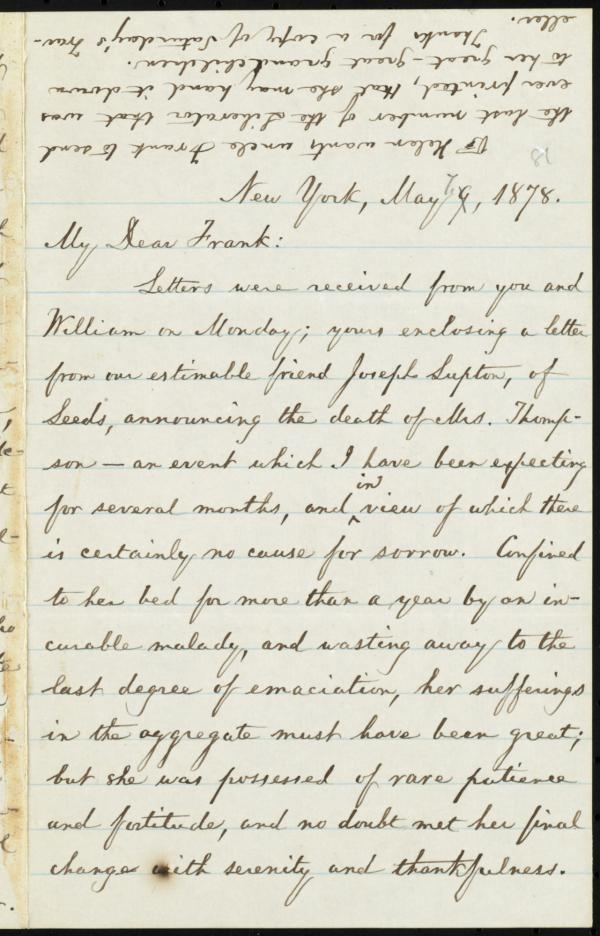 Helen wants uncle Frank to send
the last number of the Liberator that was
ever printed, that she may hand it down
to her great-great grandchildren.
Thanks for a copy of Saturday's Trav-
eller.
18
New York, May , 1878.
My Dear Frank:
Letters were received from you and
William on Monday; yours enclosing a letter
from our estimable friend Joseph Lupton, of
Leeds, announcing the death of Mrs. Thomp-
son — an event which I have been expecting
for several months, and in view of which there
is certainly no cause for sorrow. Confined
to her bed for more than a year by an in-
curable malady, and wasting away to the
last degree of emaciation, her sufferings
in the aggregate must have been great;
but she was possessed of rare patience
and fortitude, and no doubt met her final
change with serenity and thankfulness.